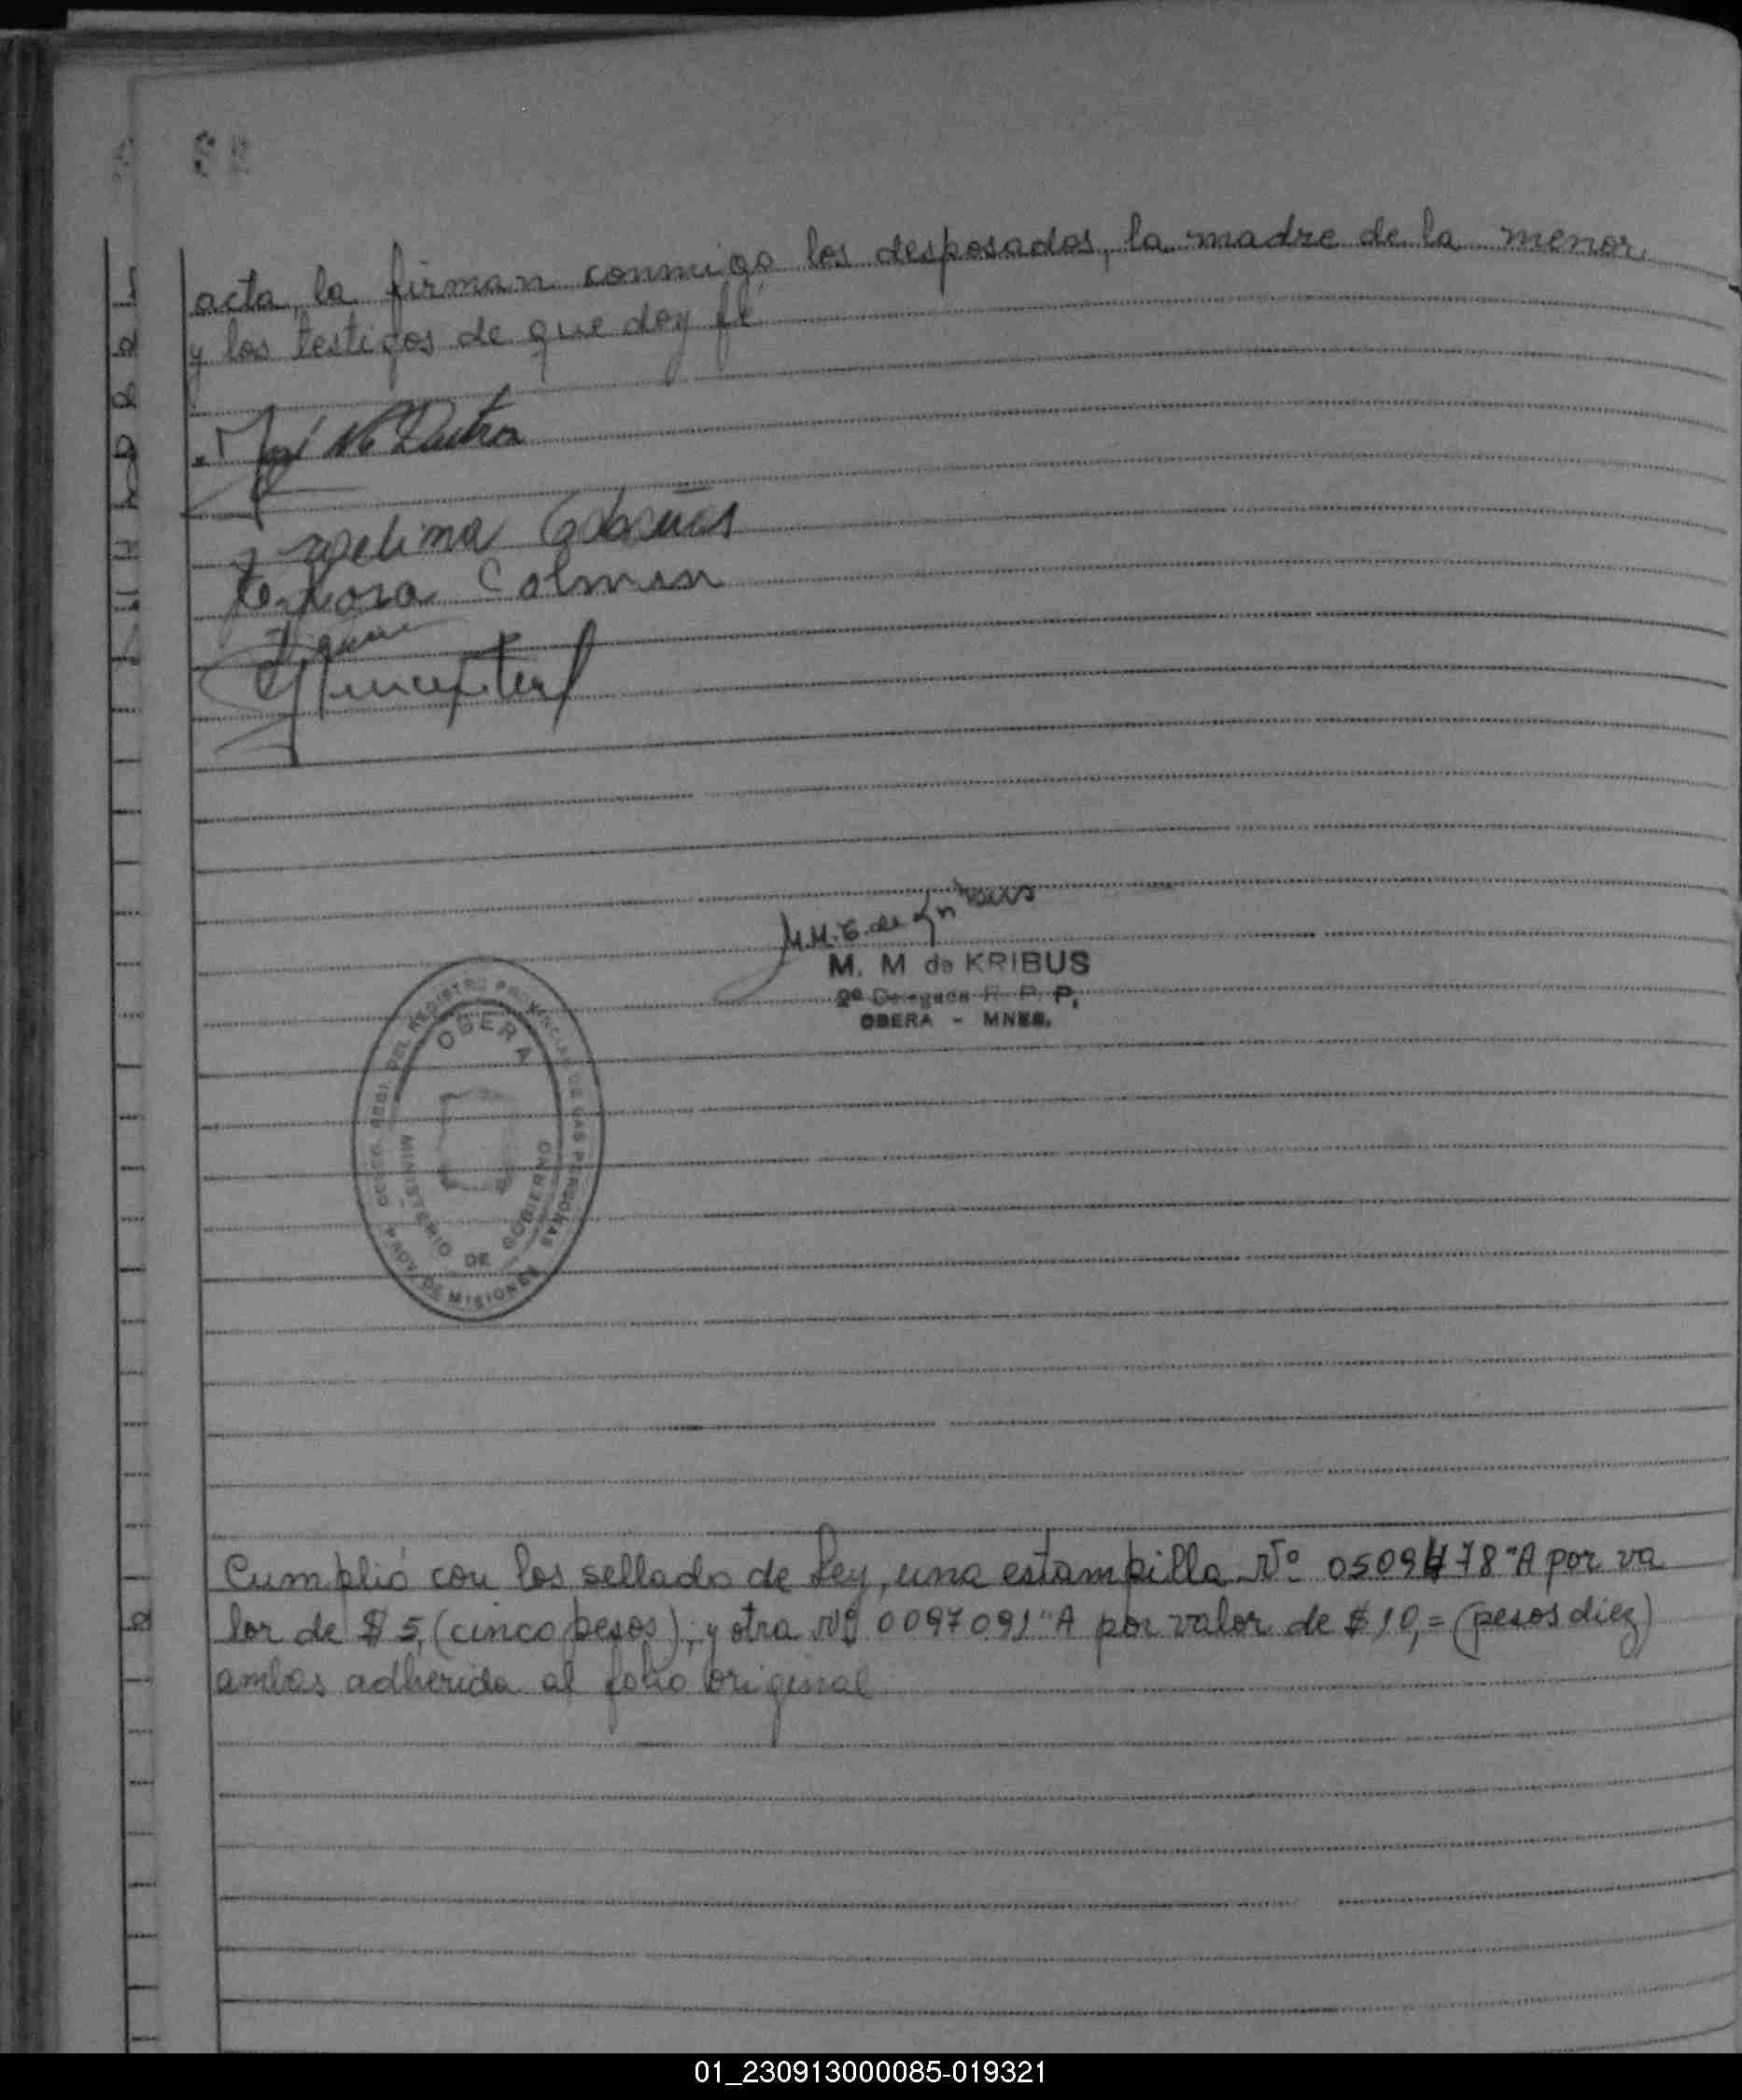 acta, la firman conmigo los desposados, la madre de la menor
y los testigos de que doy fé
José
Colman
M. M. G. de
M. M de KRIBUS
2ª Delegada R. P. P.
OBERA - MNES.
DEL REGISTRO PROVINCIAL DE LAS PERSONAS
OBERA
MINISTERIO DE GOBIERNO
PROV. DE MISIONES
Cumplió con los sellado de Ley, una estampilla Nº 0509478"A por va
lor de $ 5, (cinco pesos), y otra Nº 0097091"A por valor de $10,= (pesos diez)
ambas adherida al folio original
01_230913000085-019321